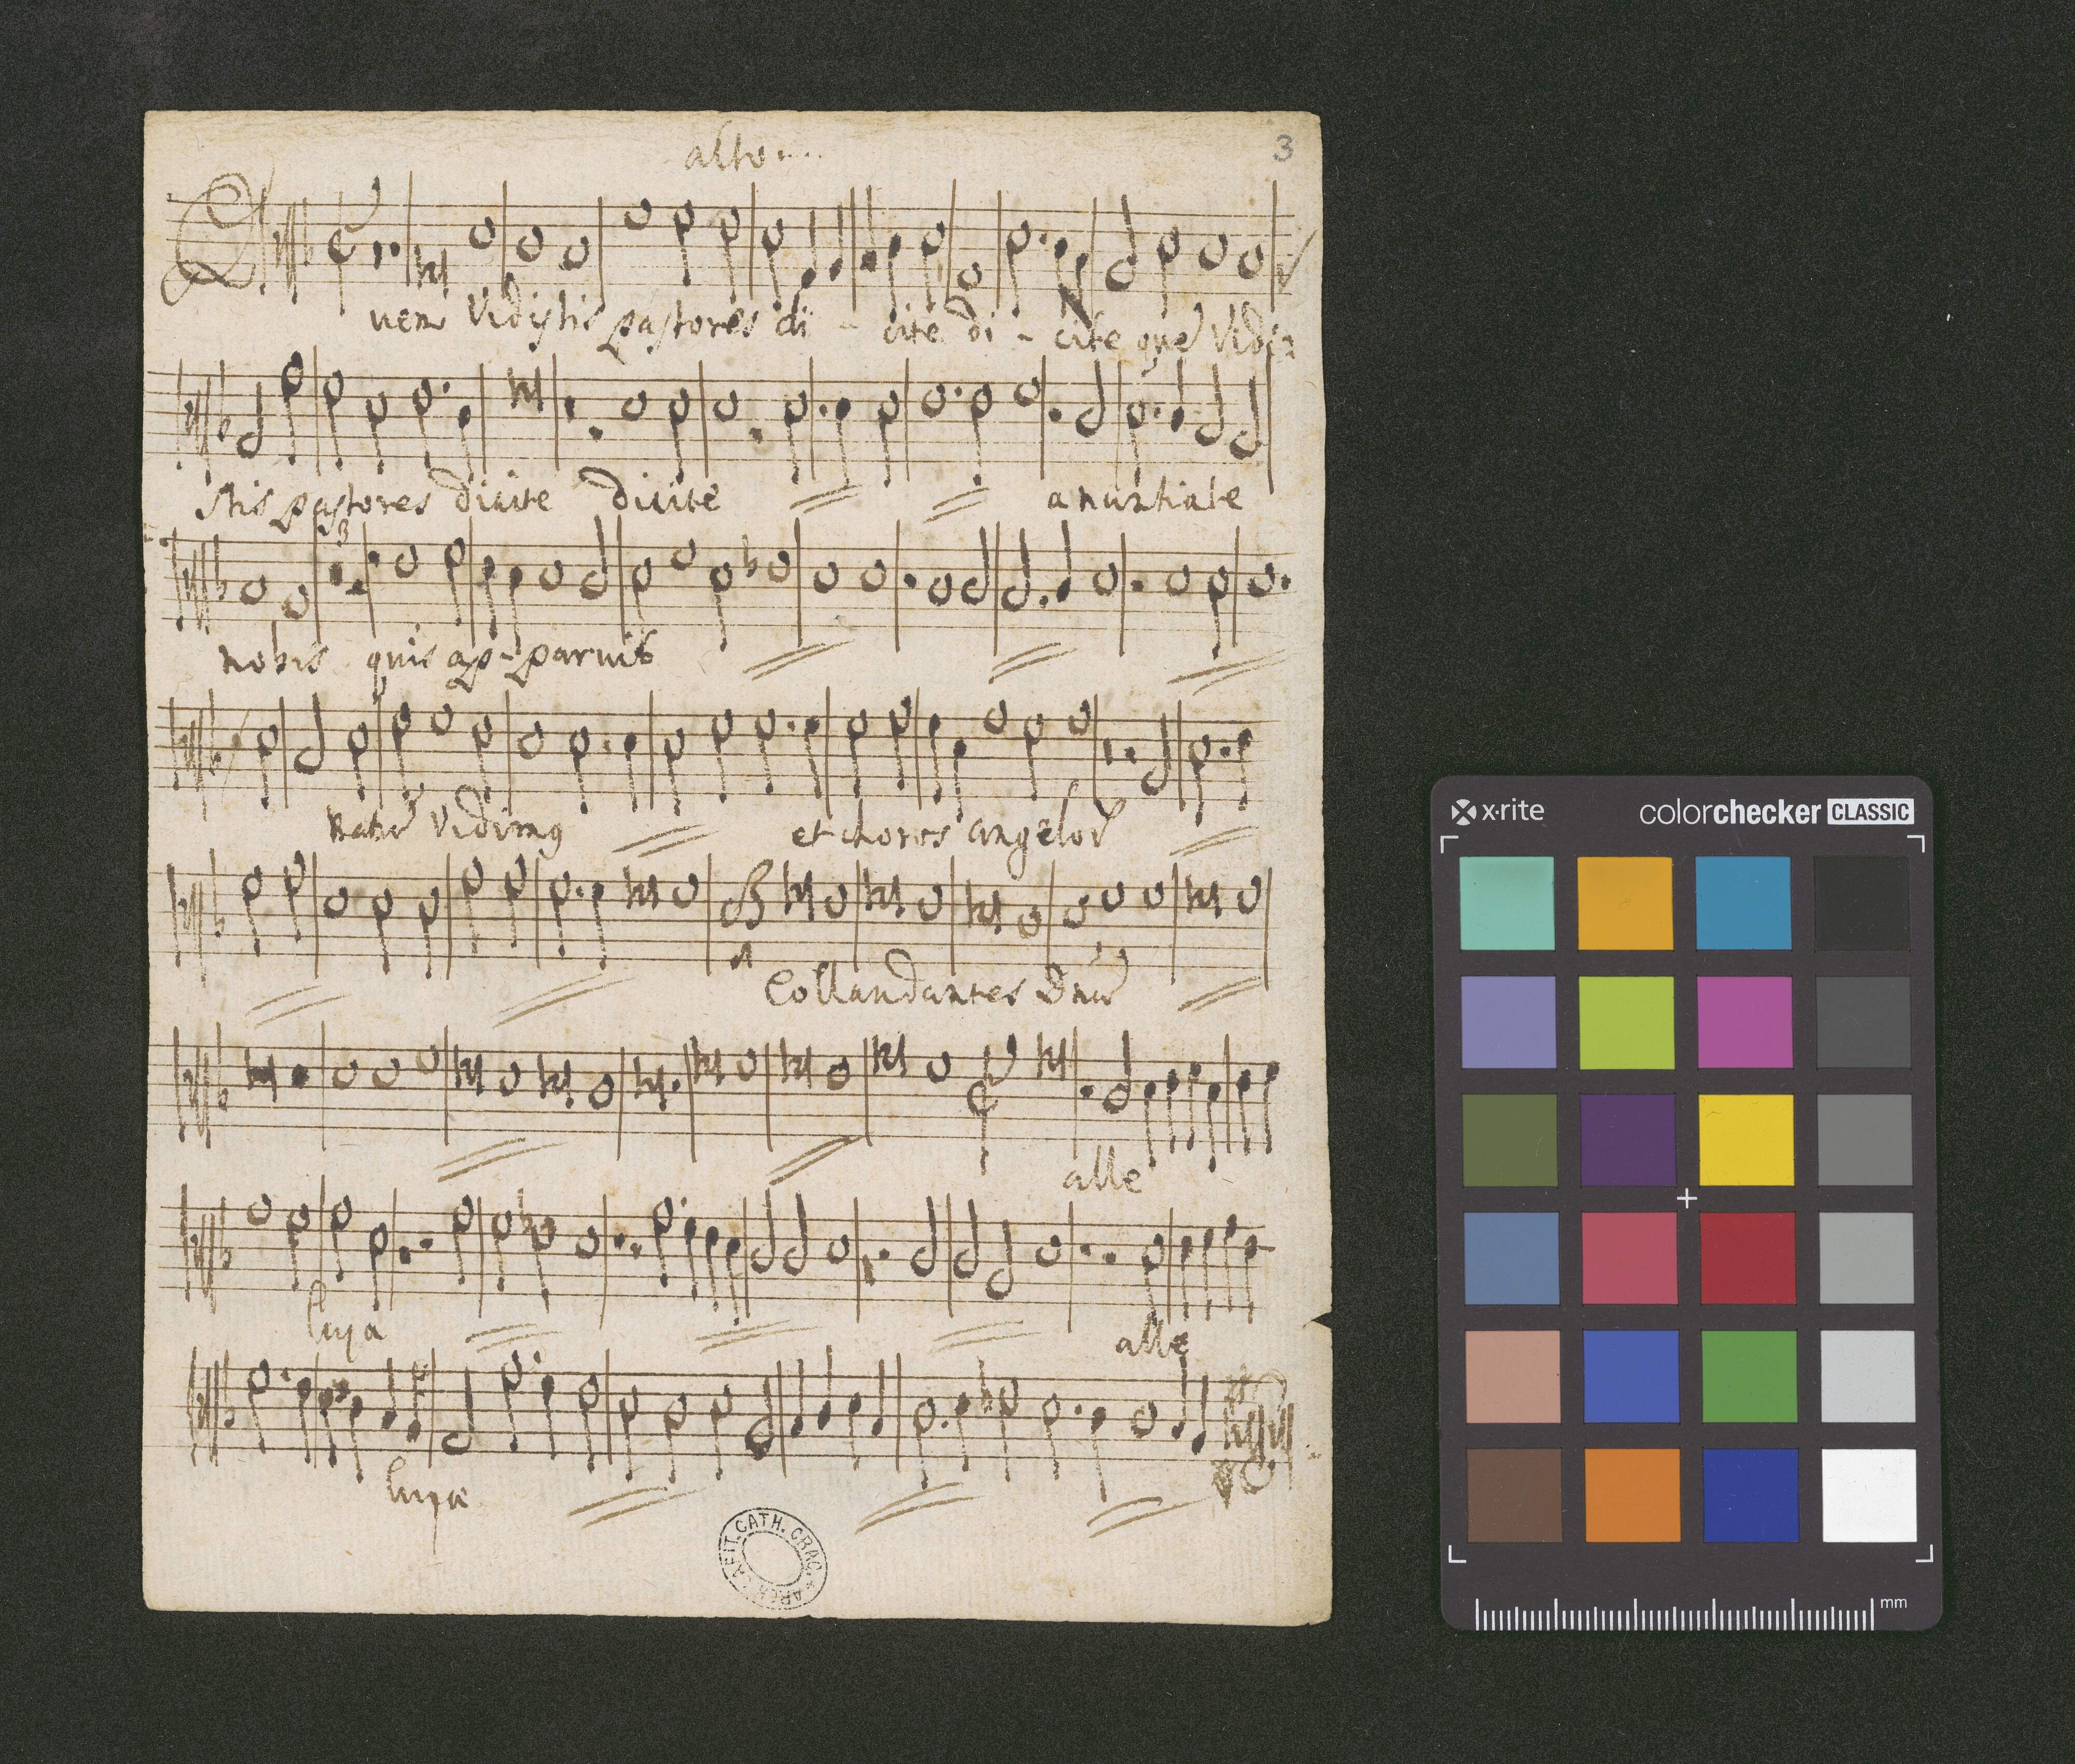 alto
3
Quem Vidistis pastores di - cite di - cite que Vidi
stis pastores dicite dicite anuntiate
3
nobis quis ap-paruit
Natu Vidimg et choros angelor
Collaudantes Dnu
alle
luya
alle
luya
ARCH. CAPIT. CATH. CRAC.
x·rite colorchecker CLASSIC
mm